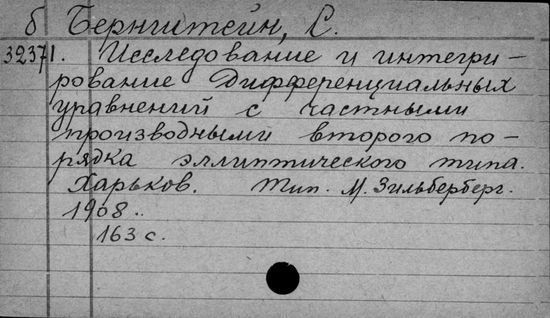 б Бернштейн, С.
32371. Исследование и интегри-
рование дифференциальных
уравнений с частными
производными второго по-
рядка эллиптического типа.
Харьков. Тип. М. Зильберберг.
1908.
163 с.